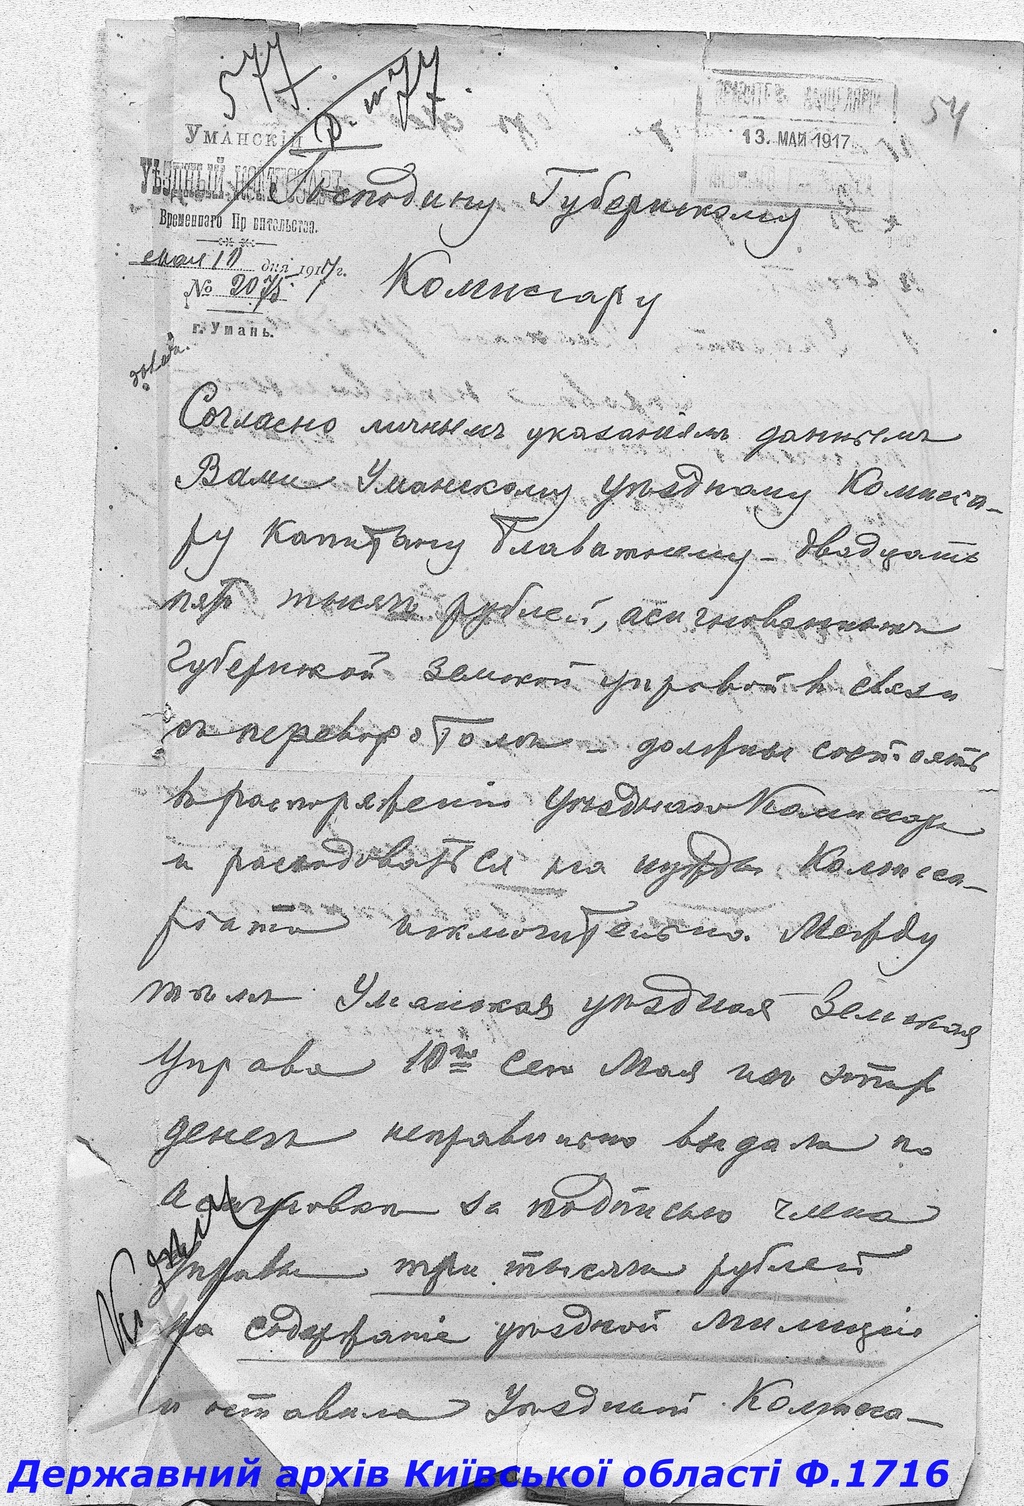 577
77
54
Уманскій
Уѣздный Комиссаръ
Временнаго Пр вительства.
мая 10 дня 1917 г.
№ 2075.
г. Умань.
13. МАЙ 1917
Господину Губернскому
Комиссару
Согласно личнымъ указаніямъ даннымъ
Вами Уманскому уѣздному Комисса-
ру Капитану Главатскому – двадцать
пять тысячъ рублей, асигнованныхъ
Губернской Земской управой въ связи
съ переворотомъ – должны состоять
въ распоряженіи Уѣзднаго Комиссара
и расходоваться на нужды Комисса-
ріата исключительно. Между
тѣмъ Уманская уѣздная Земская
Управа 10го сего Мая изъ этихъ
денегъ неправильно выдала по
Асигновкѣ за подписью члена
Управы три тысячи рублей
на содержаніе уѣздной Милиціи
и оставила Уѣздный Комисса-
Державний архів Київської області Ф.1716